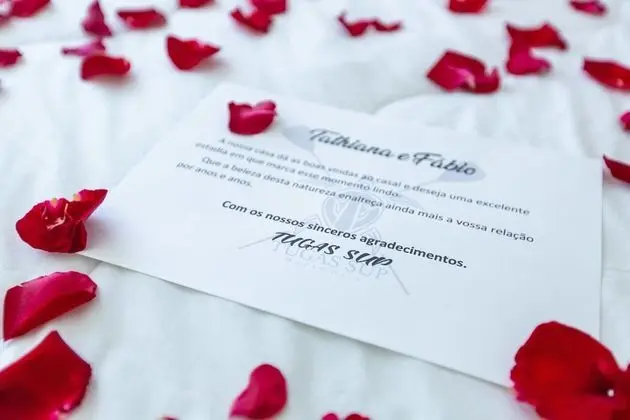 Tathiana e Fábio
A nossa casa dá as boas vindas ao casal e deseja uma excelente
estadia em que marca esse momento lindo.
Que a beleza desta natureza enalteça ainda mais a vossa relação
por anos e anos.
Com os nossos sinceros agradecimentos.
TUGAS SUP
TUGAS SUP